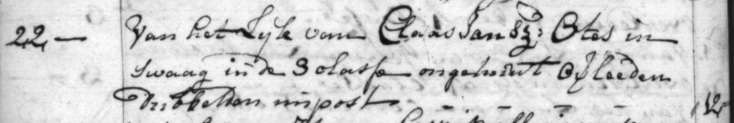 22 — Van het Lijk van Claas Jansz: Otes in
Swaag in de 3 classe ongehuwt overleeden
Dubbelden impost — — — 12